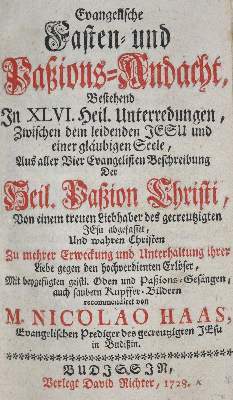 Evangelische
Fasten- und
Paßions-Andacht,
Bestehend
In XLVI. Heil. Unterredungen,
Zwischen dem leidenden JESU und
einer gläubigen Seele,
Aus aller Vier Evangelisten Beschreibung
Der
Heil. Paßion Christi,
Von einem treuen Liebhaber des gecreutzigten
JEsu abgefasset,
Und wahren Christen
Zu mehrer Erweckung und Unterhaltung ihrer
Liebe gegen den hochverdienten Erlöser,
Mit beygefügten geistl. Oden und Paßions-Gesängen,
auch saubern Kupffer-Bildern
recommendiret von
M. NICOLAO HAAS,
Evangelischen Prediger des gecreutzigten JEsu
in Budißin.
BUDISSIN,
Verlegt David Richter, 1728.